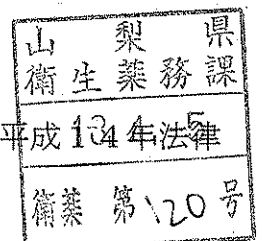 山梨県
衛生薬務課
平成14年法律
衛薬 第120号